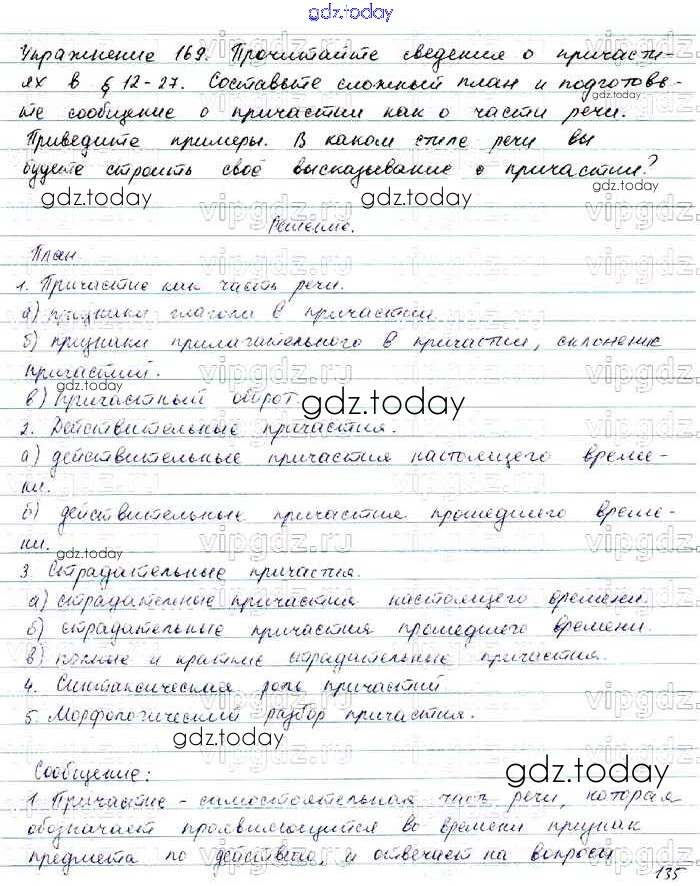 gdz.today
Упражнение 169. Прочитайте сведения о причасти-
ях в § 12-27. Составьте сложный план и подготовь-
те сообщение о причастии как о части речи.
Приведите примеры. В каком стиле речи вы
будете строить своё высказывание о причастии?
gdz.today gdz.today gdz.today
Решение.
План
1. Причастие как часть речи.
а) признаки глагола в причастии
б) признаки прилагательного в причастии, склонение
причастий.
gdz.today
в) Причастный оборот.
gdz.today
2. Действительные причастия.
а) действительные причастия настоящего време-
ни.
gdz.today
б) действительные причастия прошедшего време-
ни.
gdz.today
3. Страдательные причастия.
а) страдательные причастия настоящего времени.
б) страдательные причастия прошедшего времени.
в) полные и краткие страдательные причастия.
4. Синтаксическая роль причастий
5. Морфологический разбор причастия.
gdz.today
gdz.today
Сообщение:
1. Причастие - самостоятельная часть речи, которая
обозначает проявляющийся во времени признак
предмета по действию и отвечает на вопросы
135
vipgdz.ru